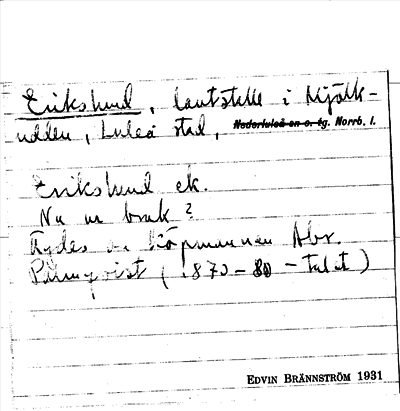 Erikslund, lantställe i Mjölk-
udden, Luleå stad, Nederluleå sn o. tg. Norrb. l.
Erikslund ek.
Nu ur bruk?
Ägdes av köpmannen Abr.
Palmqvist (1870-80-talet)
EDVIN BRÄNNSTRÖM 1931